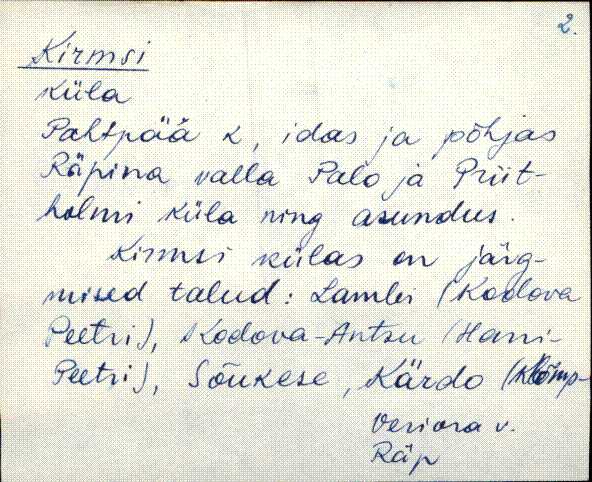 2.
Kirmsi
küla
Pahtpää k, idas ja põhjas
Räpina valla Palo ja Priit-
holmi küla ning asundus.
Kirmsi külas on järg-
mised talud: Lambi (Kodova
Peetri), Kodova-Antsu (Harri-
Peetri), Sõukese, Kärdo (Klõmp-
Veriora v.
Räp